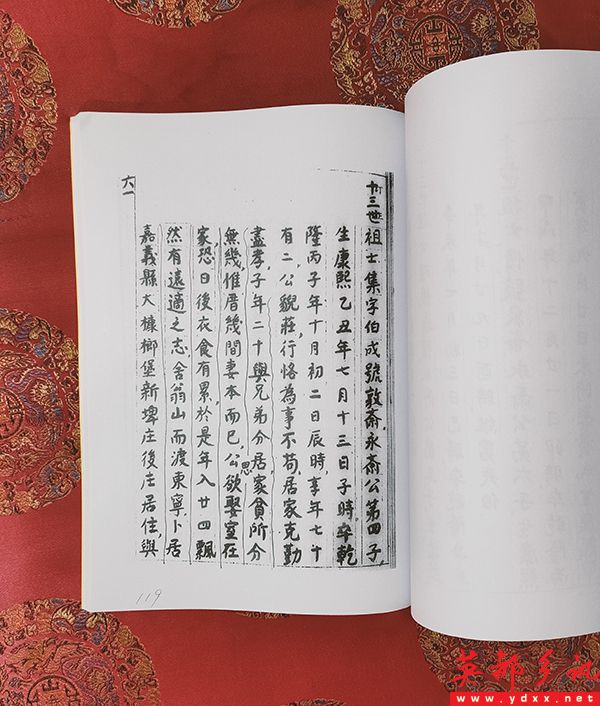 卅三世祖士集字伯成號敦斎永斎公第四子
生康熙乙丑年七月十三日子時卒乾
隆丙子年十月初二日辰時享年七十
有二公貌莊行恪為事不苟居家克勤
盡孝子年二十與兄弟分居家貧所分
無幾惟厝幾間妻本而已公思欲娶室在
家恐日後衣食有累於是年入廿四飄
然有遠適之志舍翁山而渡東寧卜居
嘉義縣大槺榔堡新埤庄後庄居住與
六一
119
英都乡讯
www.ydxx.net